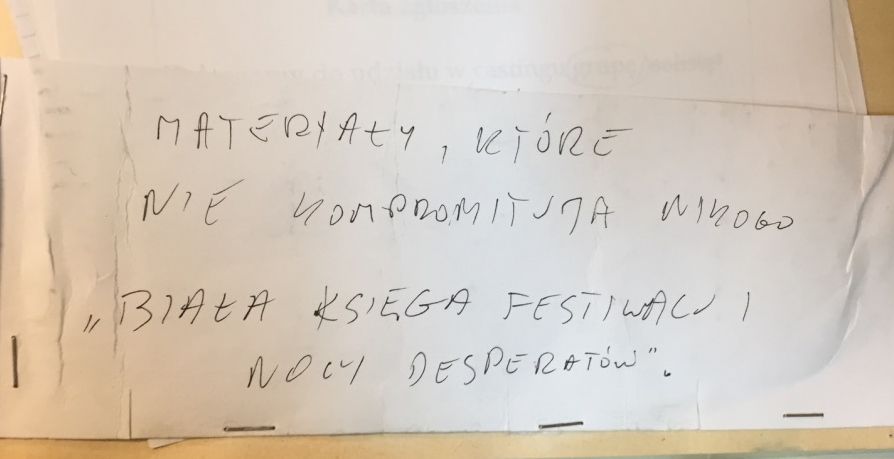 Karta zgłoszenia
do udziału w castingu(grupę/solistę)
MATERYAŁY, KTÓRE
NIE KOMPROMITUJA NIKOGO
„BIAŁA KSIĘGA FESTIWALU I
NOCY DESPERATÓW".